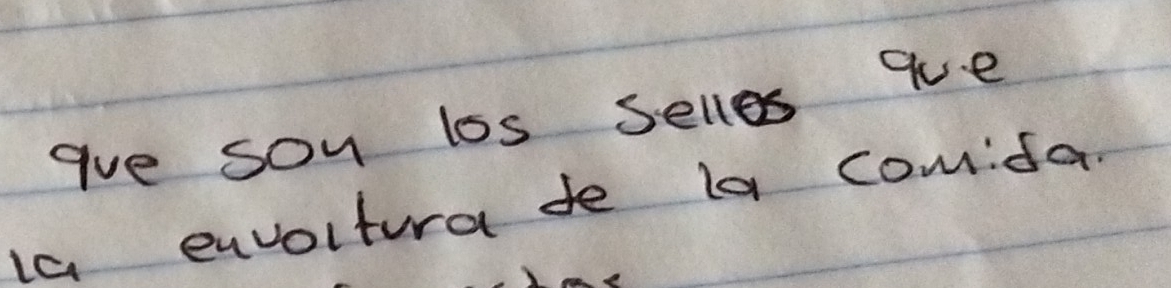 que son los sellos que
la envoltura de la comida.